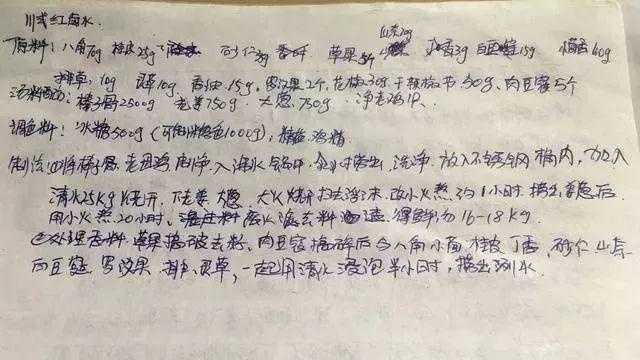 川式红卤水:
山奈20g
原料:八角70g 桂皮25g 砂仁3g 香叶 草果5个 丁香3g 白豆蔻15g 小茴香40g
排草10g 灵草10g 香 15g 罗汉果2个 花椒30g 干辣椒节50g 肉豆蔻5个
汤料配比:棒子骨2500g 老姜750g 大葱750g 净老鸡1只
调色料:冰糖500g(可制糖色1000g),精盐 鸡精
制法:①将棒子骨 老母鸡 洗净入沸水锅中 捞出 洗净 放入不锈钢桶内,加入
清水25Kg烧开 下老姜 大葱 大火烧开打去浮沫 改小火熬约1小时 捞出 葱后
用小火熬20小时 去料渣 得鲜汤16-18Kg
②处理香料 草果拍破去籽 肉豆蔻拍碎后与八角小茴桂皮丁香 砂仁 山奈
白豆蔻 罗汉果 排草、灵草,一起用清水浸泡半小时,捞出沥水.